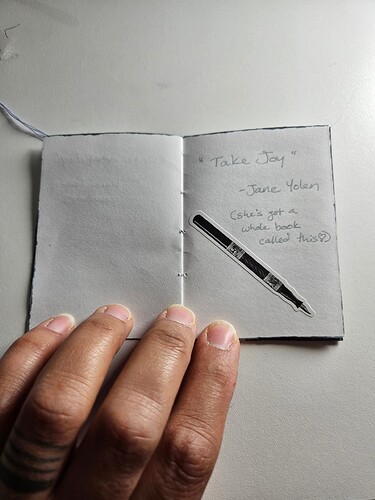 "Take Joy"
-Jane Yolen
(she's got a
whole book
called this♡)